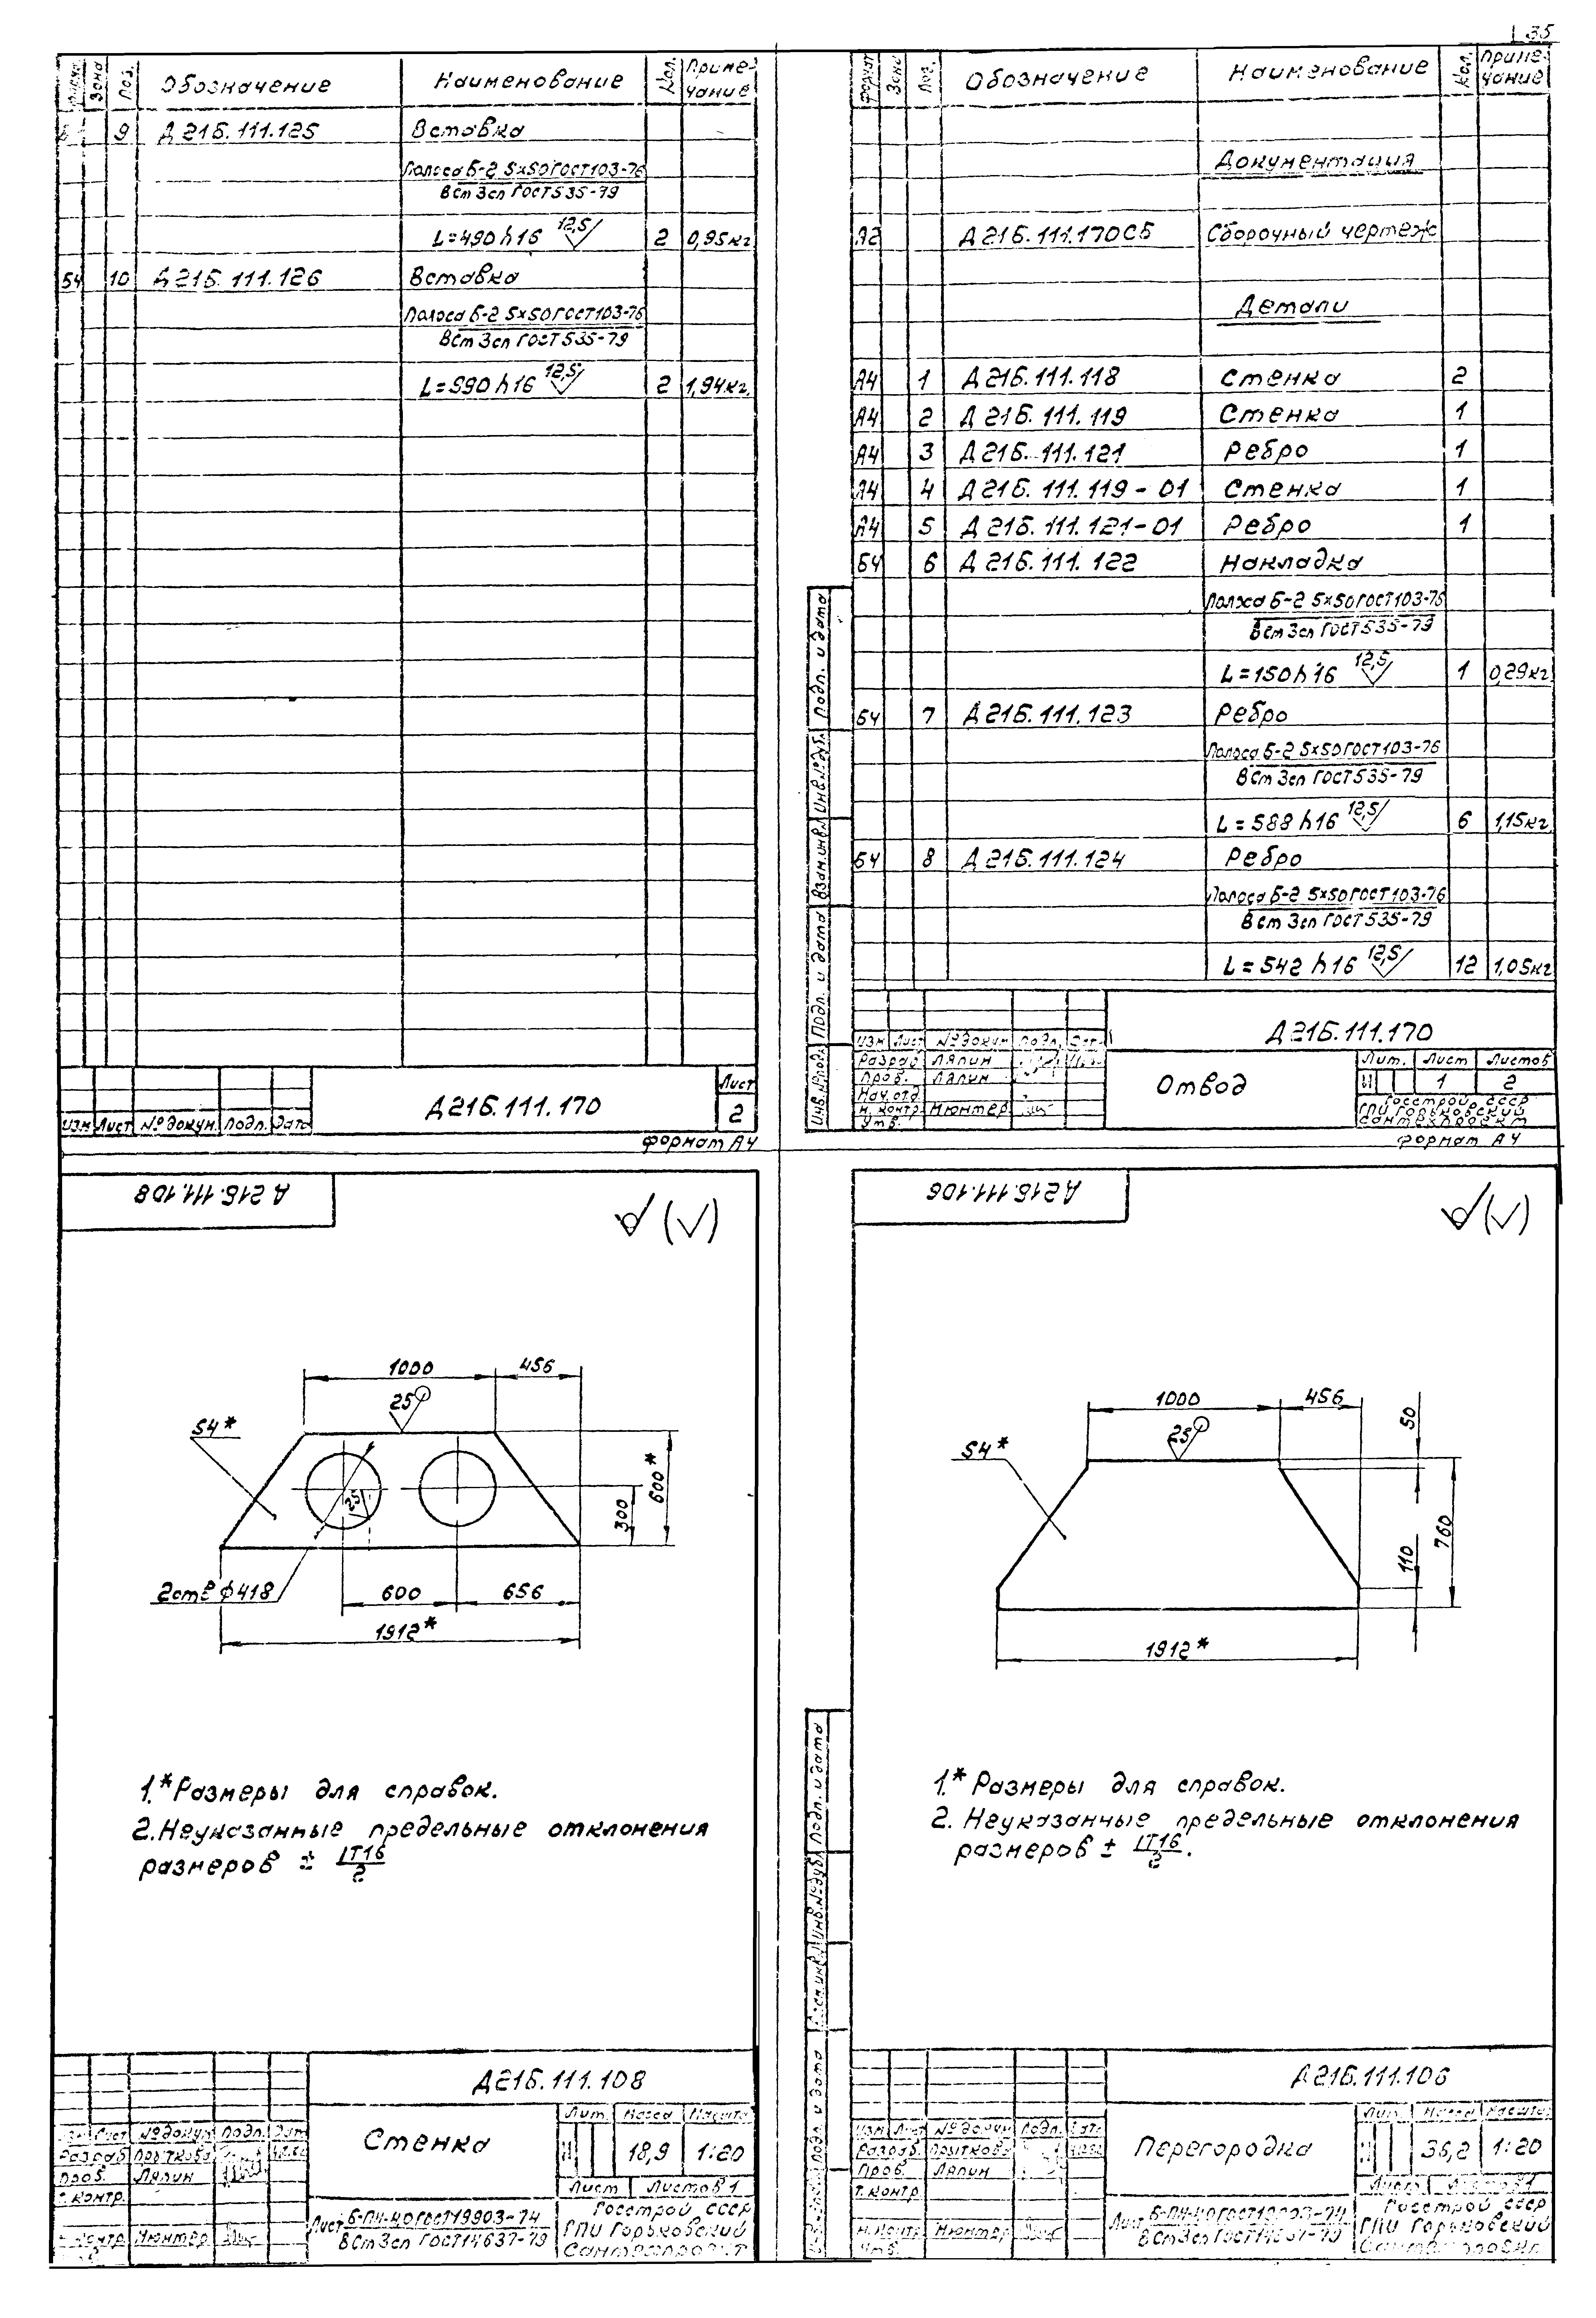 Зона Поз. Обозначение Наименование Кол. Приме-чание
9 Д21Б.111.125 Вставка
Полоса Б-2 5х50 ГОСТ 103-76
ВСт3сп ГОСТ 535-79
L=490 h16 12,5 2 0,95кг
Б4 10 Д21Б.111.126 Вставка
Полоса Б-2 5х50 ГОСТ 103-76
ВСт3сп ГОСТ 535-79
L=990 h16 12,5 2 1,94кг.
Изм Лист № докум. Подп. Дата
Д21Б.111.170
Лист
2
формат А4
35
Формат Зона Поз. Обозначение Наименование Кол. Приме-чание
Документация
А2 Д21Б.111.170СБ Сборочный чертеж
Детали
А4 1 Д21Б.111.118 Стенка 2
А4 2 Д21Б.111.119 Стенка 1
А4 3 Д21Б.111.121 Ребро 1
А4 4 Д21Б.111.119-01 Стенка 1
А4 5 Д21Б.111.121-01 Ребро 1
Б4 6 Д21Б.111.122 Накладка
Полоса Б-2 5х50 ГОСТ 103-76
ВСт3сп ГОСТ 535-79
L=150 h16 12,5 1 0,29кг
Б4 7 Д21Б.111.123 Ребро
Полоса Б-2 5х50 ГОСТ 103-76
ВСт3сп ГОСТ 535-79
L=588 h16 12,5 6 1,15кг
Б4 8 Д21Б.111.124 Ребро
Полоса Б-2 5х50 ГОСТ 103-76
ВСт3сп ГОСТ 535-79
L=542 h16 12,5 12 1,05кг
Инв.№ подл. Подп. и дата Взам.инв.№ Инв.№ дубл. Подп. и дата
Изм Лист № докум Подп. Дата
Разраб Ляпин
Пров. Ляпин
Нач.отд
Н.контр. Мюнтер
Утв.
Д21Б.111.170
Отвод
Лит. Лист Листов
1 2
Госстрой СССР
ГПИ Горьковский
Сантехпроект
формат А4
Д21Б.111.108
1000 456
25
S4*
600*
300
25
2отв ϕ418
600 656
1912*
1.* Размеры для справок.
2. Неуказанные предельные отклонения
размеров ± IT16/2
Д21Б.111.108
Изм Лист № докум Подп. Дат
Разраб Прыткова
Пров. Ляпин
Т.контр.
Н.контр Мюнтер
Стенка
Лит. Масса Масштаб
18,9 1:20
Лист Листов 1
Лист Б-ПН-4,0 ГОСТ 19903-74
ВСт3сп ГОСТ 14637-79
Госстрой СССР
ГПИ Горьковский
Сантехпроект
Д21Б.111.106
1000 456
50
25
S4*
760
110
1912*
1.* Размеры для справок.
2. Неуказанные предельные отклонения
размеров ± IT16/2.
Подп. и дата Инв.№ дубл. Подп. и дата
Д21Б.111.106
Изм Лист № докум Подп. Дата
Разраб. Прыткова
Пров. Ляпин
Т.контр
Н.контр Мюнтер
Утв.
Перегородка
Лит. Масса Масштаб
36,2 1:20
Лист Листов 1
Лист Б-ПН-4,0 ГОСТ 19903-74
ВСт3сп ГОСТ 14637-79
Госстрой СССР
ГПИ Горьковский
Сантехпроект